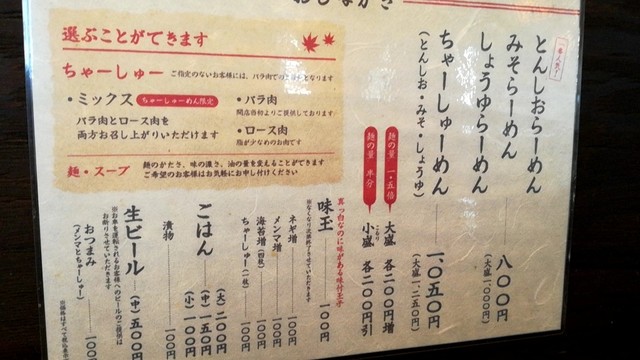 おしながき
一番人気！
とんしおらーめん
みそらーめん
しょうゆらーめん
八〇〇円
(大盛 一、〇〇〇円)
ちゃーしゅーめん
(とんしお・みそ・しょうゆ)
一、〇五〇円
(大盛 一、二五〇円)
麺の量 一・五倍
大盛 各二〇〇円増
麺の量 半分
小盛 各二〇〇円引
選ぶことができます
ちゃーしゅー ご指定のないお客様には、バラ肉でのご提供となります
・ミックス ちゃーしゅーめん限定
バラ肉とロース肉を
両方お召し上がりいただけます
・バラ肉
開店当初よりご提供しております
・ロース肉
脂が少なめのお肉です
麺・スープ
麺のかたさ、味の濃さ、油の量を変えることができます
ご希望のお客様はお気軽にお申し付けください
真っ白なのに味がある味付玉子
味玉 一〇〇円
※なくなり次第終了させていただきます
ネギ増 一〇〇円
メンマ増 一〇〇円
海苔増(四枚) 一〇〇円
ちゃーしゅー(一枚) 一〇〇円
ごはん
(大) 二〇〇円
(中) 一五〇円
(小) 一〇〇円
漬物 一〇〇円
生ビール (中) 五〇〇円
※お車を運転されるお客様へのビールのご提供は
お断りさせていただきます
おつまみ 一〇〇円
(メンマとちゃーしゅー)